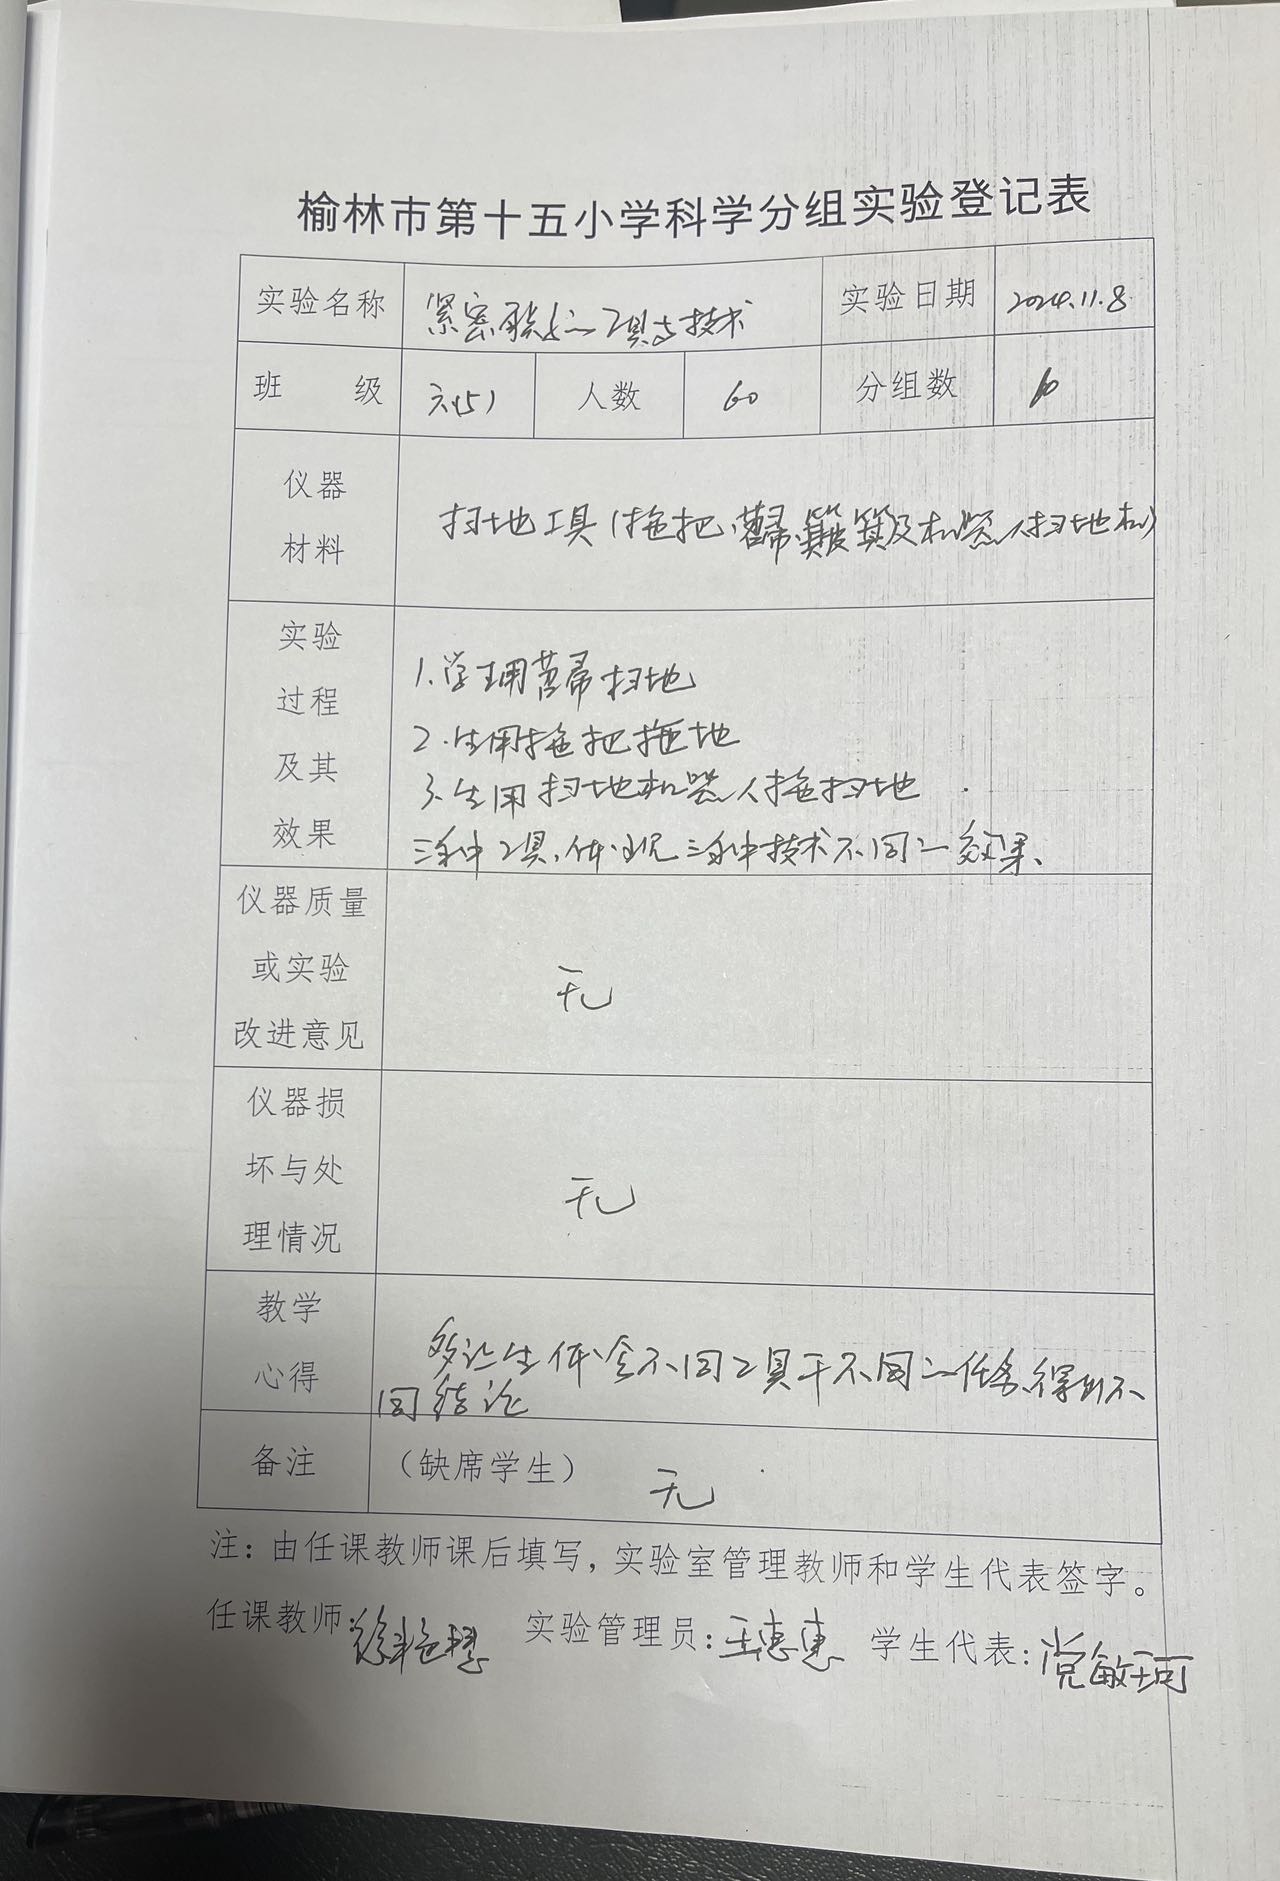 榆林市第十五小学科学分组实验登记表
实验名称 紧密联系的工具与技术 实验日期 2024.11.8
班 级 六(5) 人数 60 分组数 10
仪器
材料
扫地工具(拖把、笤帚、簸箕及机器人扫地机)
实验
过程
及其
效果
1.学生用笤帚扫地
2.生用拖把拖地
3.生用扫地机器人拖扫地
三种工具、体现三种技术不同的效果、
仪器质量
或实验
改进意见
无
仪器损
坏与处
理情况
无
教学
心得
多让生体会不同工具干不同的任务、得出不
同结论
备注 (缺席学生) 无
注：由任课教师课后填写，实验室管理教师和学生代表签字。
任课教师: 实验管理员:王惠惠 学生代表:党敏珂